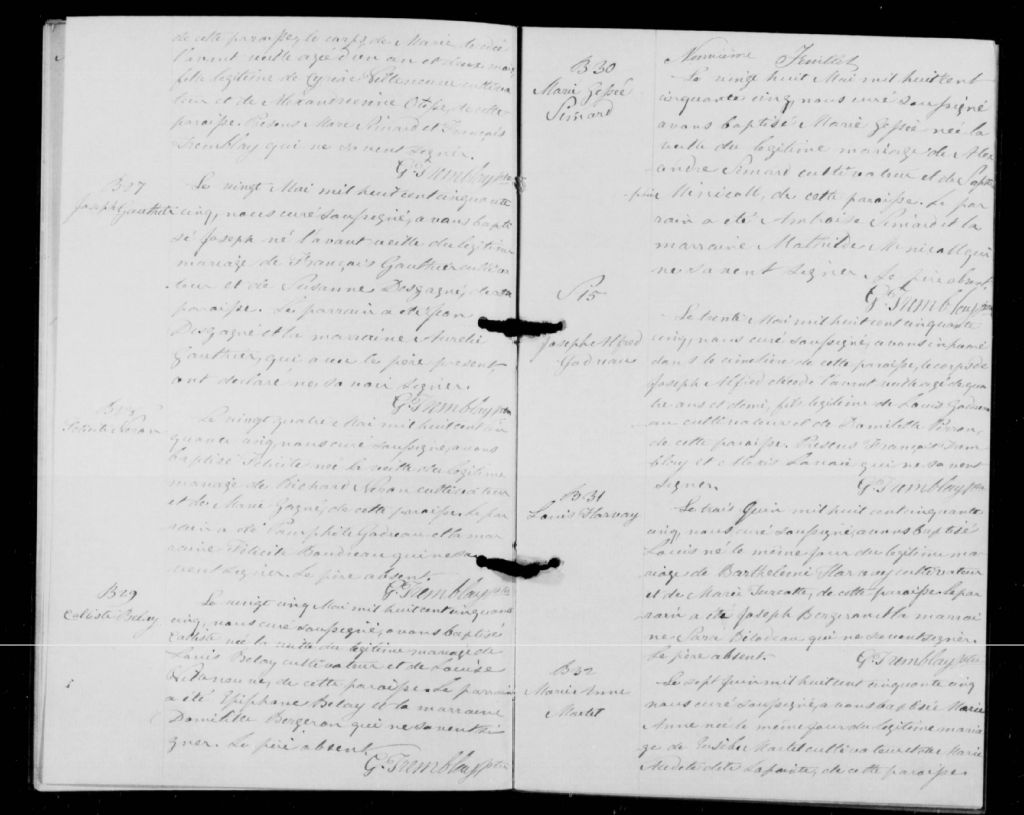 de cette paroisse, le corps de Marie
l'avant veille agé d'un an et
fille légitime de
teur et de de cette
paroisse. Présens Marc Simard et François
Tremblay qui ne savent signer.
G. Tremblay ptre
B 27
Joseph Gauthier
Le vingt Mai mil huit cent cinquante
cinq, nous curé soussigné, avons bapti
sé Joseph né l'avant veille du légitime
mariage de François Gauthier cultiva
teur et de Susanne Desgagné, de cette
paroisse. Le parrain a été
Desgagné et la marraine Aurelie
Gauthier, qui avec le père présent
ont déclaré ne savoir signer.
G. Tremblay ptre
Le vingt quatre Mai mil huit cent cin
quante cinq, nous curé soussigné, avons
baptisé Félicité née la veille du légitime
mariage de Richard cultivateur
et de Marie Gagné, de cette paroisse. Le par
rain a été Pamphile Gadreau et la mar
raine Félicité Boudreau qui ne sa
vent signer. Le père absent.
G. Tremblay ptre
B 29
Caliste Belay
Le vingt cinq Mai mil huit cent cinquante
cinq, nous curé soussigné, avons baptisé
Caliste née la veille du légitime mariage de
Louis Belay cultivateur et de Louise
de cette paroisse. Le parrain
a été Epiphane Belay et la marraine
Domitilde Bergeron qui ne savent si
gner. Le père absent
G. Tremblay ptre
Neuvième Feuillet
B 30
Marie Gessée
Simard
Le vingt huit Mai mil huit cent
cinquante cinq, nous curé soussigné
avons baptisé Marie Gessée née la
veille du légitime mariage de Alex
andre Simard cultivateur et de Sophie
de cette paroisse. Le par
rain a été Ambroise Simard et la
marraine Mathilde qui
ne savent signer. Le père absent.
G. Tremblay ptre
S 15
Joseph Alfred
Gadreau
Le trente Mai mil huit cent cinquante
cinq, nous curé soussigné, avons inhumé
dans le cimetière de cette paroisse, le corps de
Joseph Alfred décédé l'avant veille agé de qua
tre ans et demi, fils légitime de Louis Gadre
au cultivateur et de Domitilde Perron,
de cette paroisse. Présens François Trem
blay et Alexis qui ne savent
signer.
G. Tremblay ptre
B 31
Louis Harvay
Le trois Juin mil huit cent cinquante
cinq, nous curé soussigné, avons baptisé
Louis né le même jour du légitime ma
riage de Barthelemi Harvay cultivateur
et de Marie Turcotte, de cette paroisse. Le par
rain a été Joseph Bergeron et la marrai
ne Sara Bilodeau qui ne savent signer.
Le père absent.
G. Tremblay ptre
B 32
Marie Anne
Martel
Le sept Juin mil huit cent cinquante cinq
nous curé soussigné, avons baptisé Marie
Anne née le même jour du légitime maria
ge de Eusèbe Martel cultivateur et de Marie
Modeste dite Lapointe, de cette paroisse.